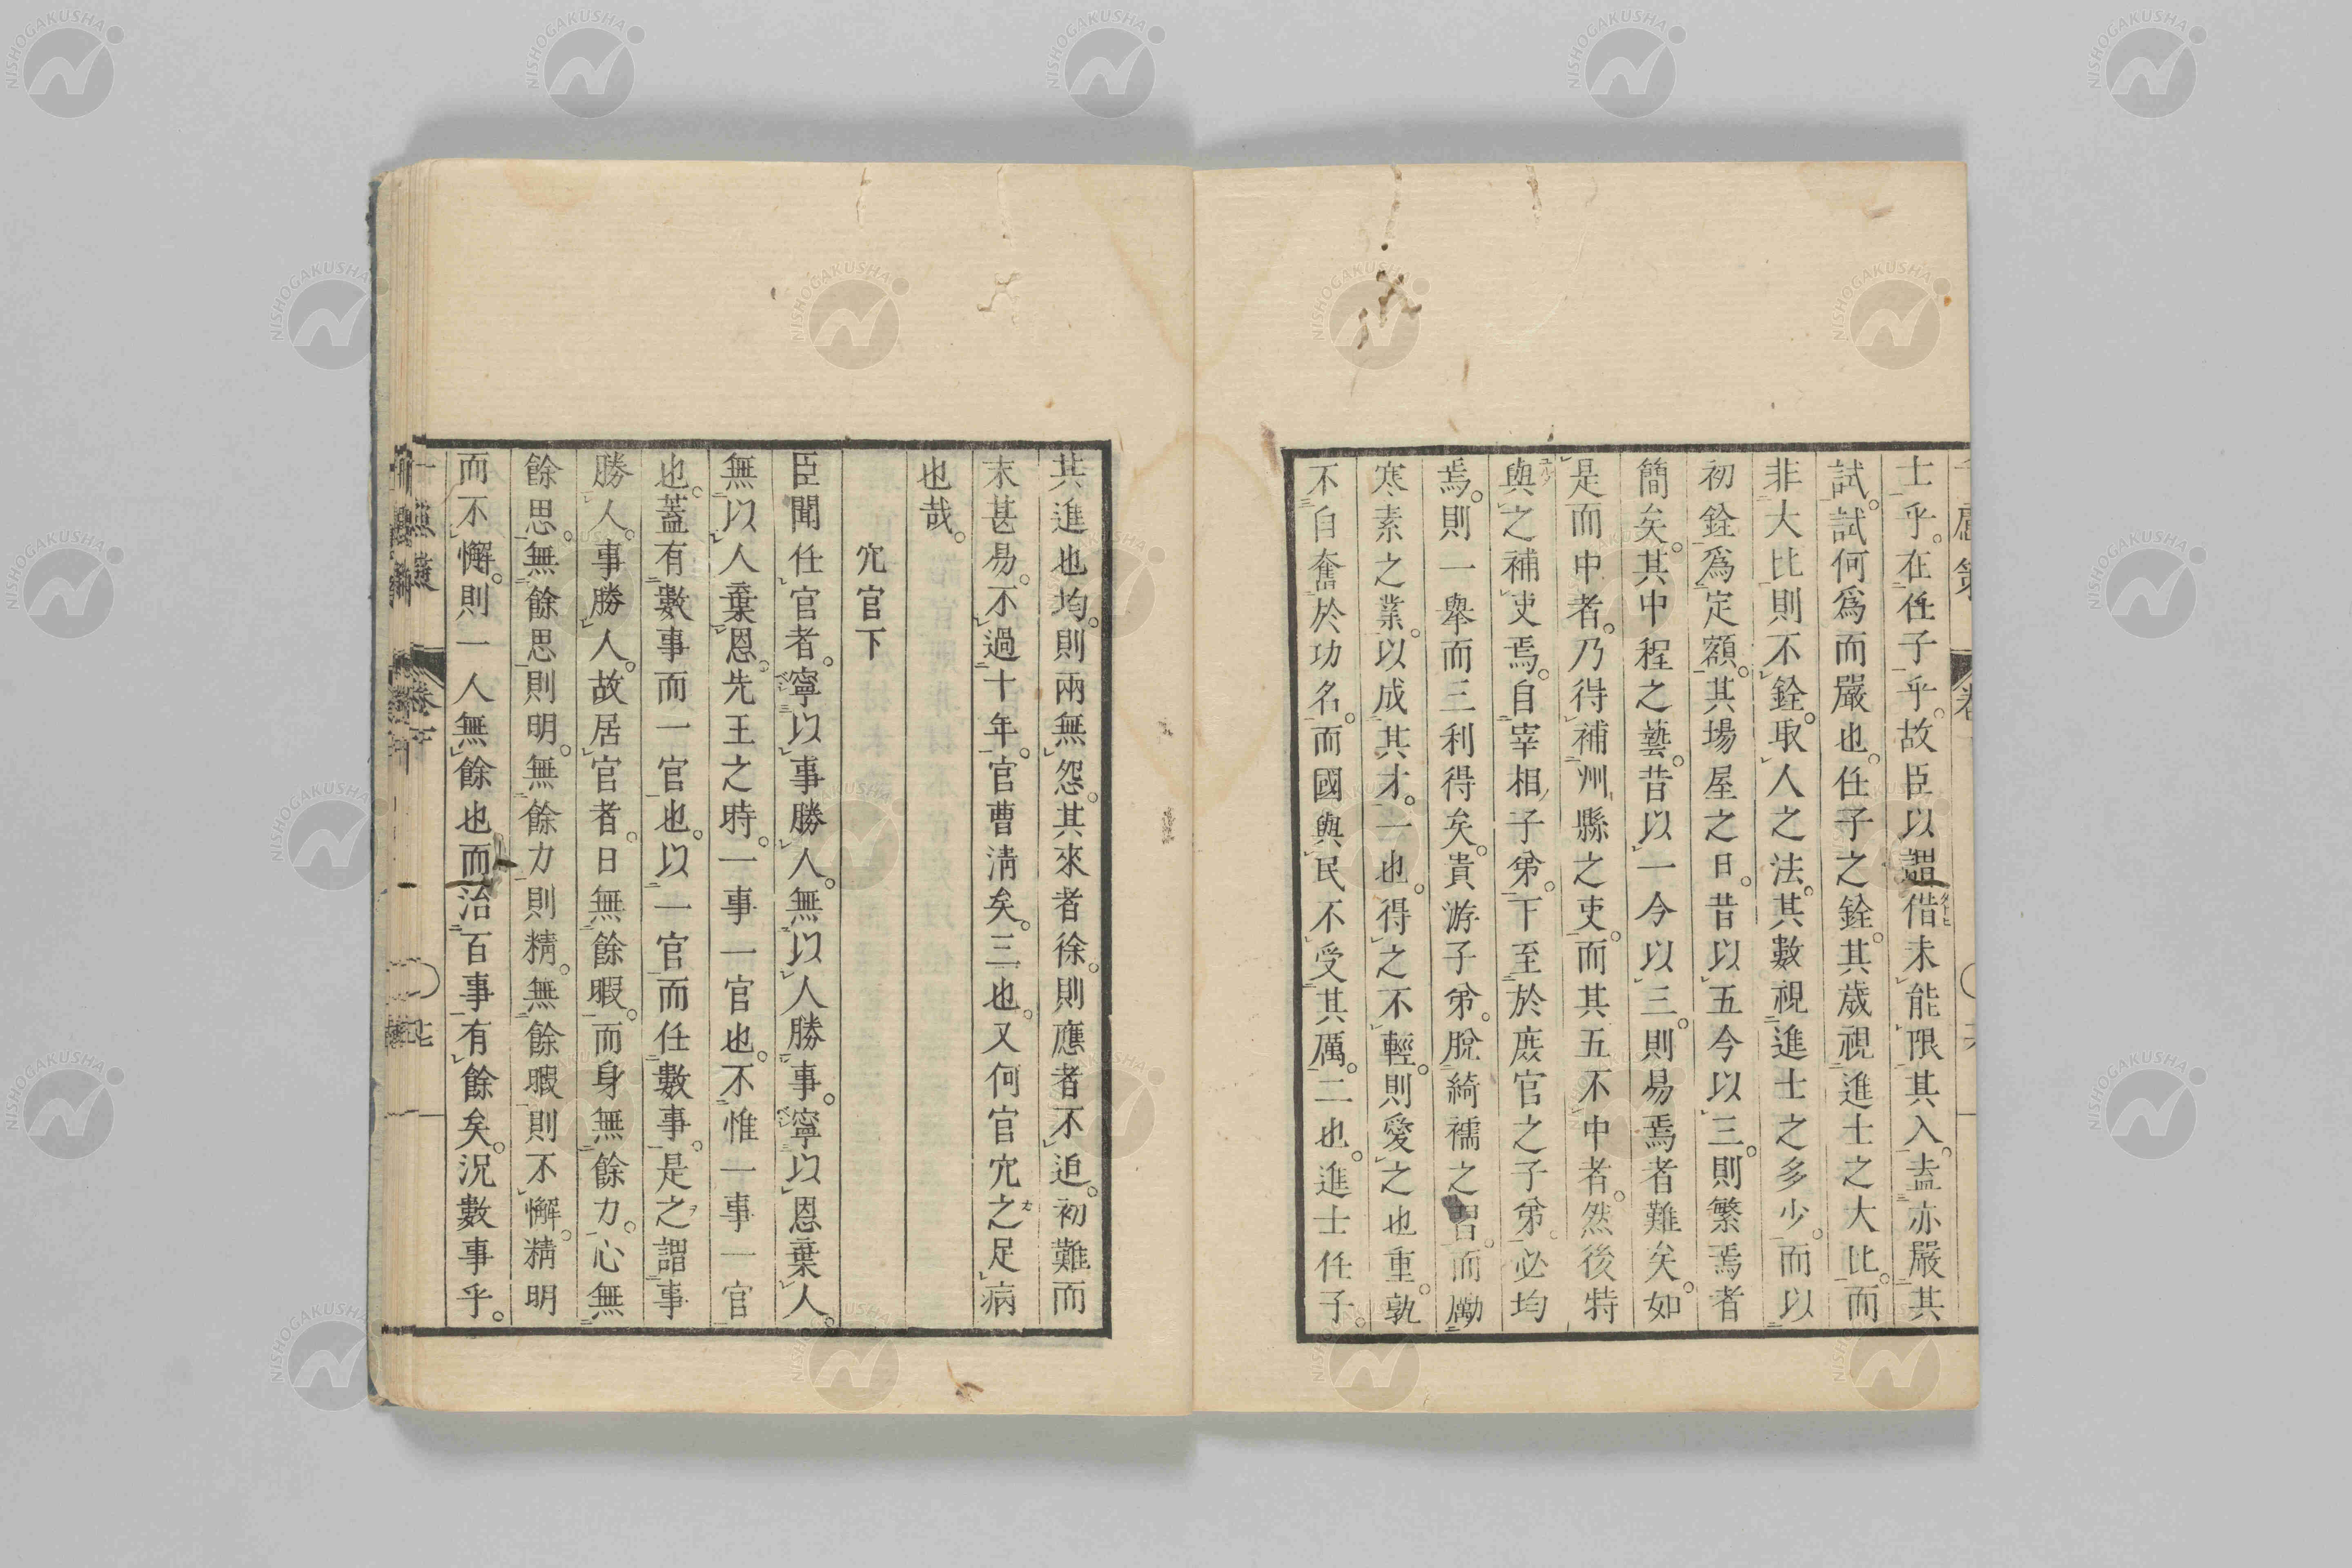 士乎。在任子乎。故臣以謂借未能限其入。盍亦嚴其
試。試何爲而嚴也。任子之銓。其歲視進士之大比。而
非大比則不銓。取人之法。其數視進士之多少。而以
初銓爲定額。其場屋之日。昔以五今以三。則繁焉者
簡矣。其中程之藝。昔以一今以三。則易焉者難矣。如
是而中者。乃得補州縣之吏。而其五不中者。然後特
與之補吏焉。自宰相子弟。下至於庶官之子弟。必均
焉。則一舉而三利得矣。貴游子弟。脫綺襦之習。而勵
寒素之業。以成其才。一也。得之不輕。則愛之也重。孰
不自奮於功名。而國與民不受其厲。二也。進士任子
其進也均。則兩無怨。其來者徐。則應者不迫。初難而
末甚易。不過十年。官曹淸矣。三也。又何官冗之足病
也哉。
冗官下
臣聞任官者。寧以事勝人。無以人勝事。寧以恩棄人。
無以人棄恩。先王之時。一事一官也。不惟一事一官
也。蓋有數事而一官也。以一官而任數事。是之謂事
勝人。事勝人。故居官者。日無餘暇。而身無餘力。心無
餘思。無餘思則明。無餘力則精。無餘暇則不懈。精明
而不懈。則一人無餘也。而治百事有餘矣。況數事乎。
NISHOGAKUSHA